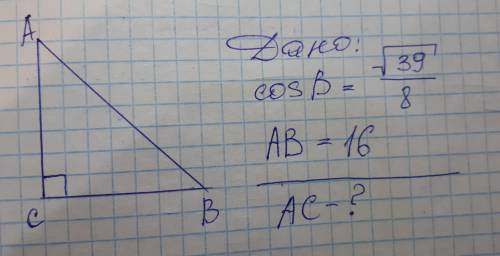 A
C
B
Дано:
cosB = √39/8
AB = 16
AC-?